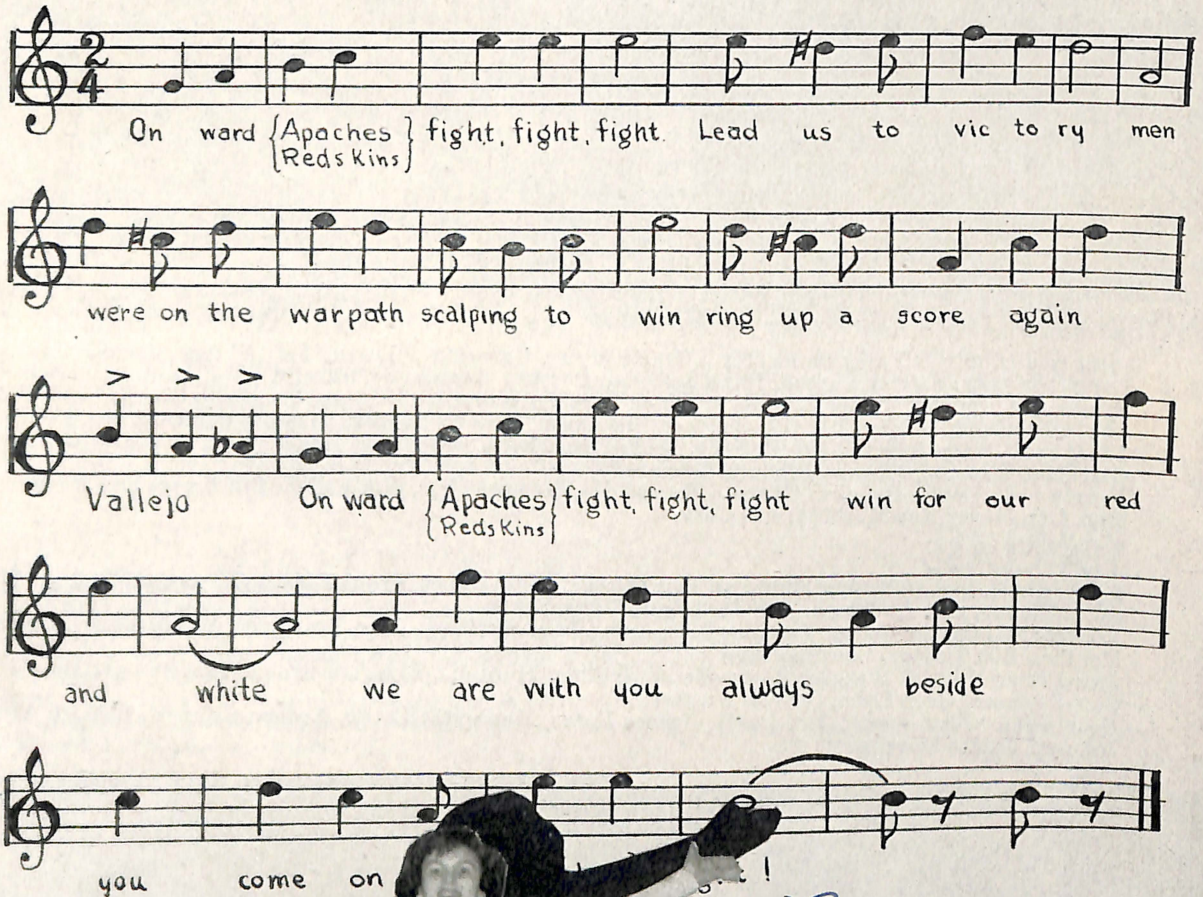 2
4
On ward {Apaches} fight, fight, fight. Lead us to vic to ry men
{Redskins}
were on the warpath scalping to win ring up a score again
Vallejo On ward {Apaches} fight, fight, fight win for our red
{Redskins}
and white we are with you always beside
you come on !